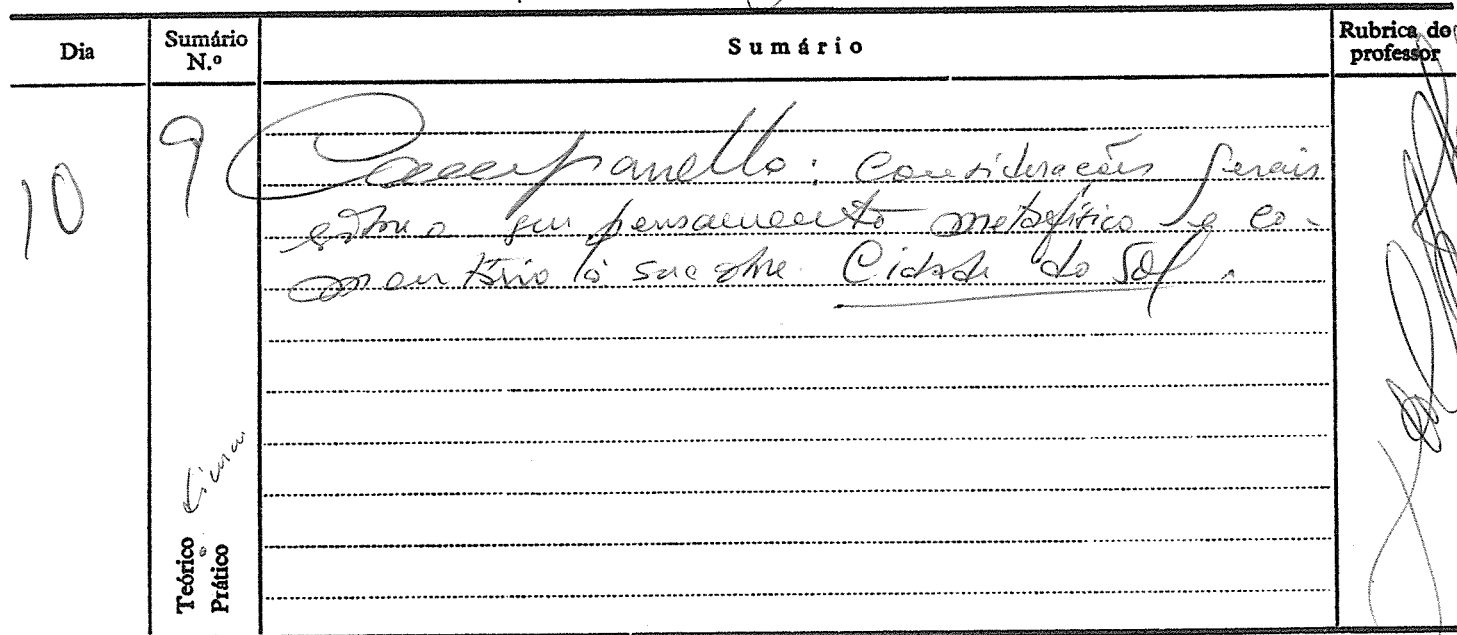 Dia
Sumário
N.º
Sumário
Rubrica do
professor
10
9
Campanella: Considerações gerais
sobre o seu pensamento metafísico e co-
mentário à sua obra Cidade do Sol.
Teórico
Prático